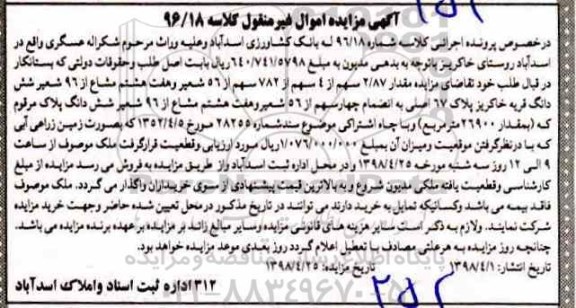 آگهی مزایده اموال غیرمنقول کلاسه ۹۶/۱۸
درخصوص پرونده اجرائی کلاسه شماره ۹۶/۱۸ له بانک کشاورزی اسدآباد وعلیه وراث مرحوم شکراله عسگری واقع در
اسدآباد روستای خاکریز باتوجه به بدهی مدیون به مبلغ ۶۴۰/۷۴۱/۵۷۹۸ ریال بابت اصل طلب وحقوقات دولتی که بستانکار
در قبال طلب خود تقاضای مزایده مقدار ۲/۸۷ سهم از ۴ سهم از ۷۸۲ سهم از ۵۶ شعیر وهفت هشتم مشاع از ۹۶ شعیر شش
دانگ قریه خاکریز پلاک ۶۷ اصلی به انضمام چهارسهم از ۵۶ شعیروهفت هشتم مشاع از ۹۶ شعیر شش دانگ پلاک مرقوم
که (بمقدار ۲۶۹۰۰ مترمربع) وبا چاه اشتراکی موضوع سندشماره ۲۸۲۵۵ مورخ ۱۳۵۲/۴/۵ که بصورت زمین زراعی آبی
که با درنظرگرفتن موقعیت ومیزان آن بمبلغ ۱/۰۷۶/۰۰۰/۰۰۰ ریال مورد ارزیابی وقطعیت قرارگرفت ملک موصوف از ساعت
۹ الی ۱۲ روز سه شنبه مورخه ۱۳۹۸/۴/۲۵ ودر محل اداره ثبت اسدآباد واز طریق مزایده به فروش می رسد مزایده از مبلغ
کارشناسی وقطعیت یافته ملکی مدیون شروع و به بالاترین قیمت پیشنهادی از سوی خریداران واگذار می گردد. ملک موصوف
فاقد بیمه می باشد وکسانیکه تمایل به خرید دارند می توانند در تاریخ مذکور درمحل تعیین شده حاضر وجهت خرید مزایده
شرکت نمایند. ولازم به ذکر است سایر هزینه های قانونی مزایده وسایر مبالغ زائد بر مزایده برعهده برنده مزایده می باشد.
چنانچه روز مزایده به هرعلتی مصادف با تعطیل اعلام گردد روز بعدی موعد مزایده خواهد بود.
تاریخ انتشار: ۱۳۹۸/۴/۱ تاریخ مزایده: ۱۳۹۸/۴/۲۵
۳۱۲ اداره ثبت اسناد واملاک اسدآباد